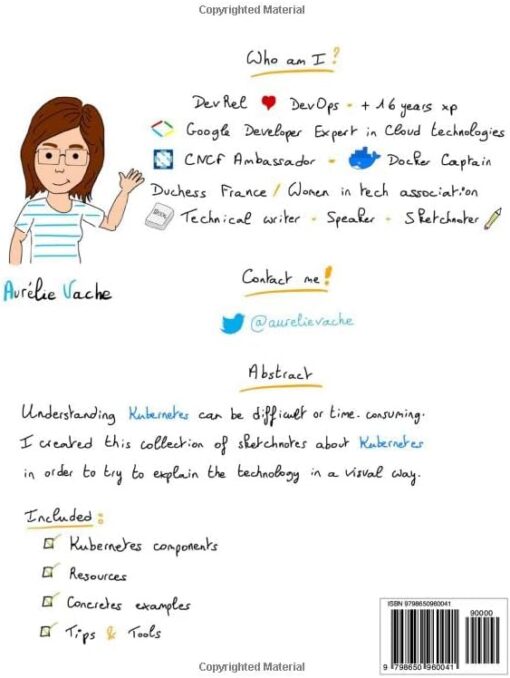 Copyrighted Material
Who am I ?
DevRel ❤ DevOps - + 16 years xp
Google Developer Expert in Cloud technologies
CNCF Ambassador - Docker Captain
Duchess France / Women in tech association
Technical writer - Speaker - Sketchnoter
Aurélie Vache
Contact me !
@aurelievache
Abstract
Understanding Kubernetes can be difficult or time-consuming.
I created this collection of sketchnotes about Kubernetes
in order to try to explain the technology in a visual way.
Included :
Kubernetes components
Resources
Concretes examples
Tips & Tools
ISBN 9798650960041
90000
9 798650 960041
Copyrighted Material